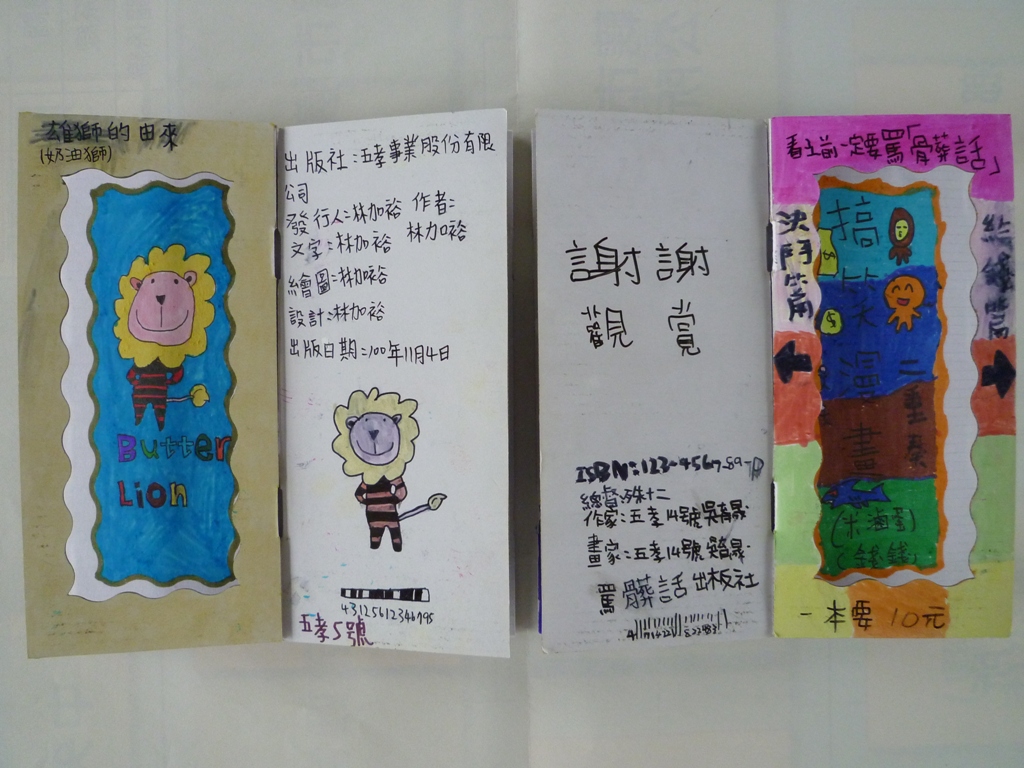 雄獅的由來
(奶油獅)
Butter
Lion
出版社:五孝事業股份有限
公司
發行人:林加裕 作者:
文字:林加裕 林加裕
繪圖:林加裕
設計:林加裕
出版日期:100年11月4日
43125612346795
五孝5號
謝謝
觀賞
ISBN:123-4567-89-
總督:珠十二
作家:五孝14號
畫家:五孝14號
罵髒話出板社
看之前一定要罵「骨髒話」
決鬥篇
搞笑漫畫
二重奏
錢篇
一本要10元